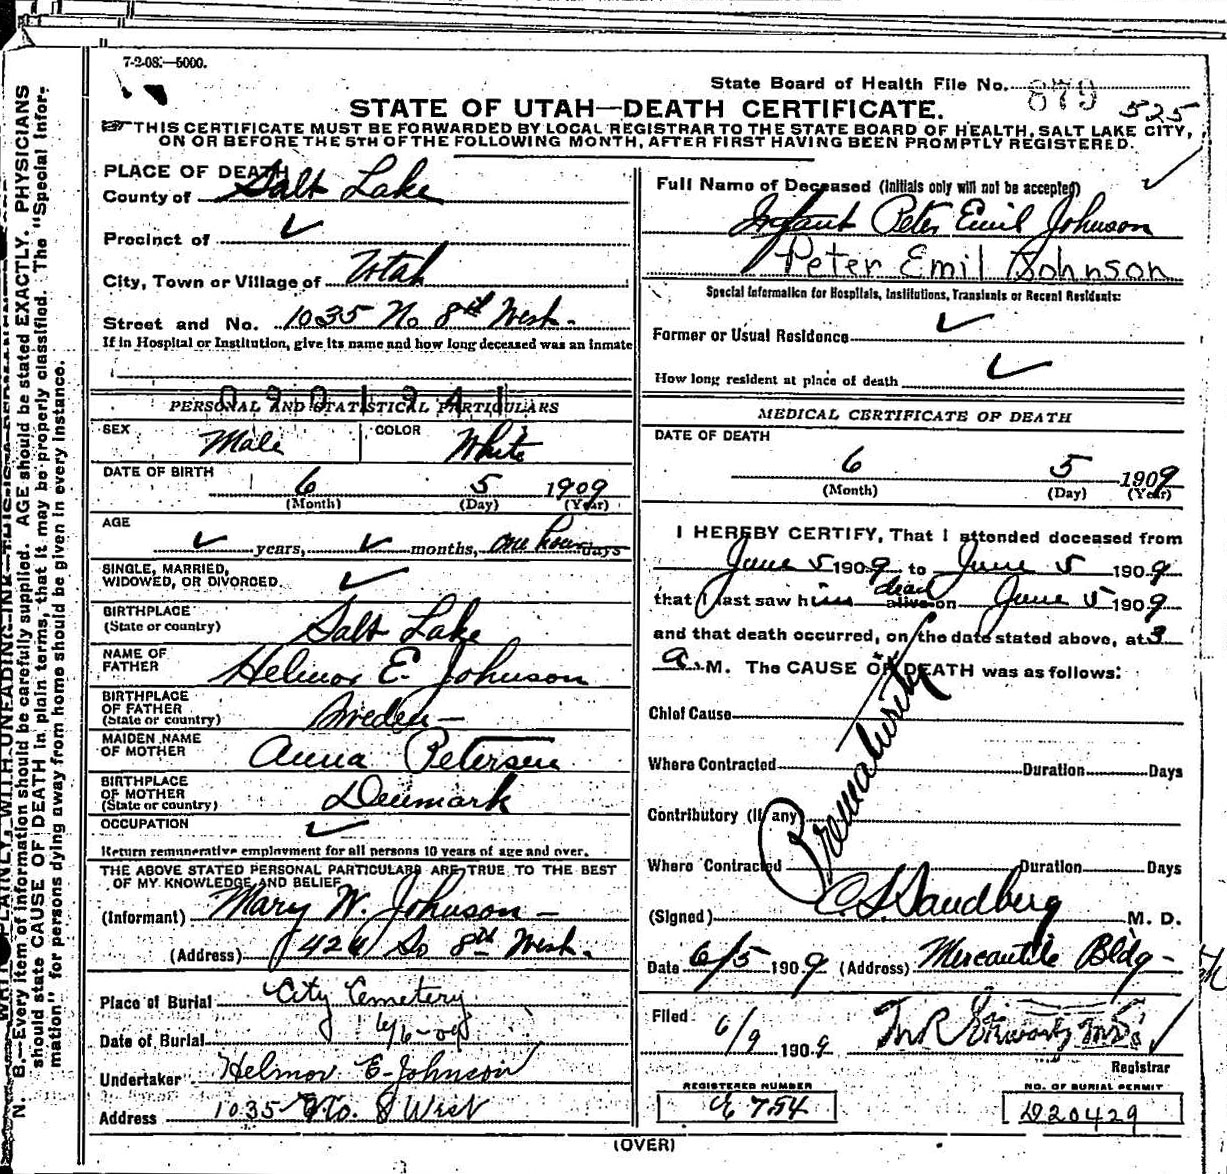 7-2-08.—5000.
State Board of Health File No. 879 525
STATE OF UTAH—DEATH CERTIFICATE.
THIS CERTIFICATE MUST BE FORWARDED BY LOCAL REGISTRAR TO THE STATE BOARD OF HEALTH, SALT LAKE CITY,
ON OR BEFORE THE 5TH OF THE FOLLOWING MONTH, AFTER FIRST HAVING BEEN PROMPTLY REGISTERED.
PLACE OF DEATH
County of Salt Lake
Precinct of ✓
City, Town or Village of Utah
Street and No. 1035 No 8th West.
If in Hospital or Institution, give its name and how long deceased was an inmate
0901941
PERSONAL AND STATISTICAL PARTICULARS
SEX Male COLOR White
DATE OF BIRTH 6 5 1909
(Month) (Day) (Year)
AGE ✓ years, ✓ months, one hour days
SINGLE, MARRIED,
WIDOWED, OR DIVORCED. ✓
BIRTHPLACE
(State or country) Salt Lake
NAME OF
FATHER Helmor E. Johnson
BIRTHPLACE
OF FATHER
(State or country) Sweden—
MAIDEN NAME
OF MOTHER Anna Petersen
BIRTHPLACE
OF MOTHER
(State or country) Denmark
OCCUPATION ✓
Return remunerative employment for all persons 10 years of age and over.
THE ABOVE STATED PERSONAL PARTICULARS ARE TRUE TO THE BEST
OF MY KNOWLEDGE AND BELIEF
(Informant) Mary W. Johnson—
(Address) 424 So 8th West.
Place of Burial City Cemetery
Date of Burial 6/6-09
Undertaker Helmor E. Johnson
Address 1035 No. 8 West
Full Name of Deceased (Initials only will not be accepted)
Infant Peter Emil Johnson
Peter Emil Johnson
Special Information for Hospitals, Institutions, Transients or Recent Residents:
Former or Usual Residence ✓
How long resident at place of death ✓
MEDICAL CERTIFICATE OF DEATH
DATE OF DEATH
6 5 1909
(Month) (Day) (Year)
I HEREBY CERTIFY, That I attended deceased from
June 5 1909 to June 5 1909
that I last saw him dead alive on June 5 1909
and that death occurred, on the date stated above, at 3
a. M. The CAUSE OF DEATH was as follows:
Prematurity
Chief Cause
Where Contracted Duration Days
Contributory (If any)
Where Contracted Duration Days
(Signed) C. L. Sandberg M. D.
Date 6/5 1909 (Address) Mercantile Bldg-
Filed 6/9 1909
Registrar
REGISTERED NUMBER
E 754
NO. OF BURIAL PERMIT
D20429
(OVER)
N. B.—Every item of information should be carefully supplied. AGE should be stated EXACTLY. PHYSICIANS
should state CAUSE OF DEATH in plain terms, that it may be properly classified. The "Special Infor-
mation" for persons dying away from home should be given in every instance.